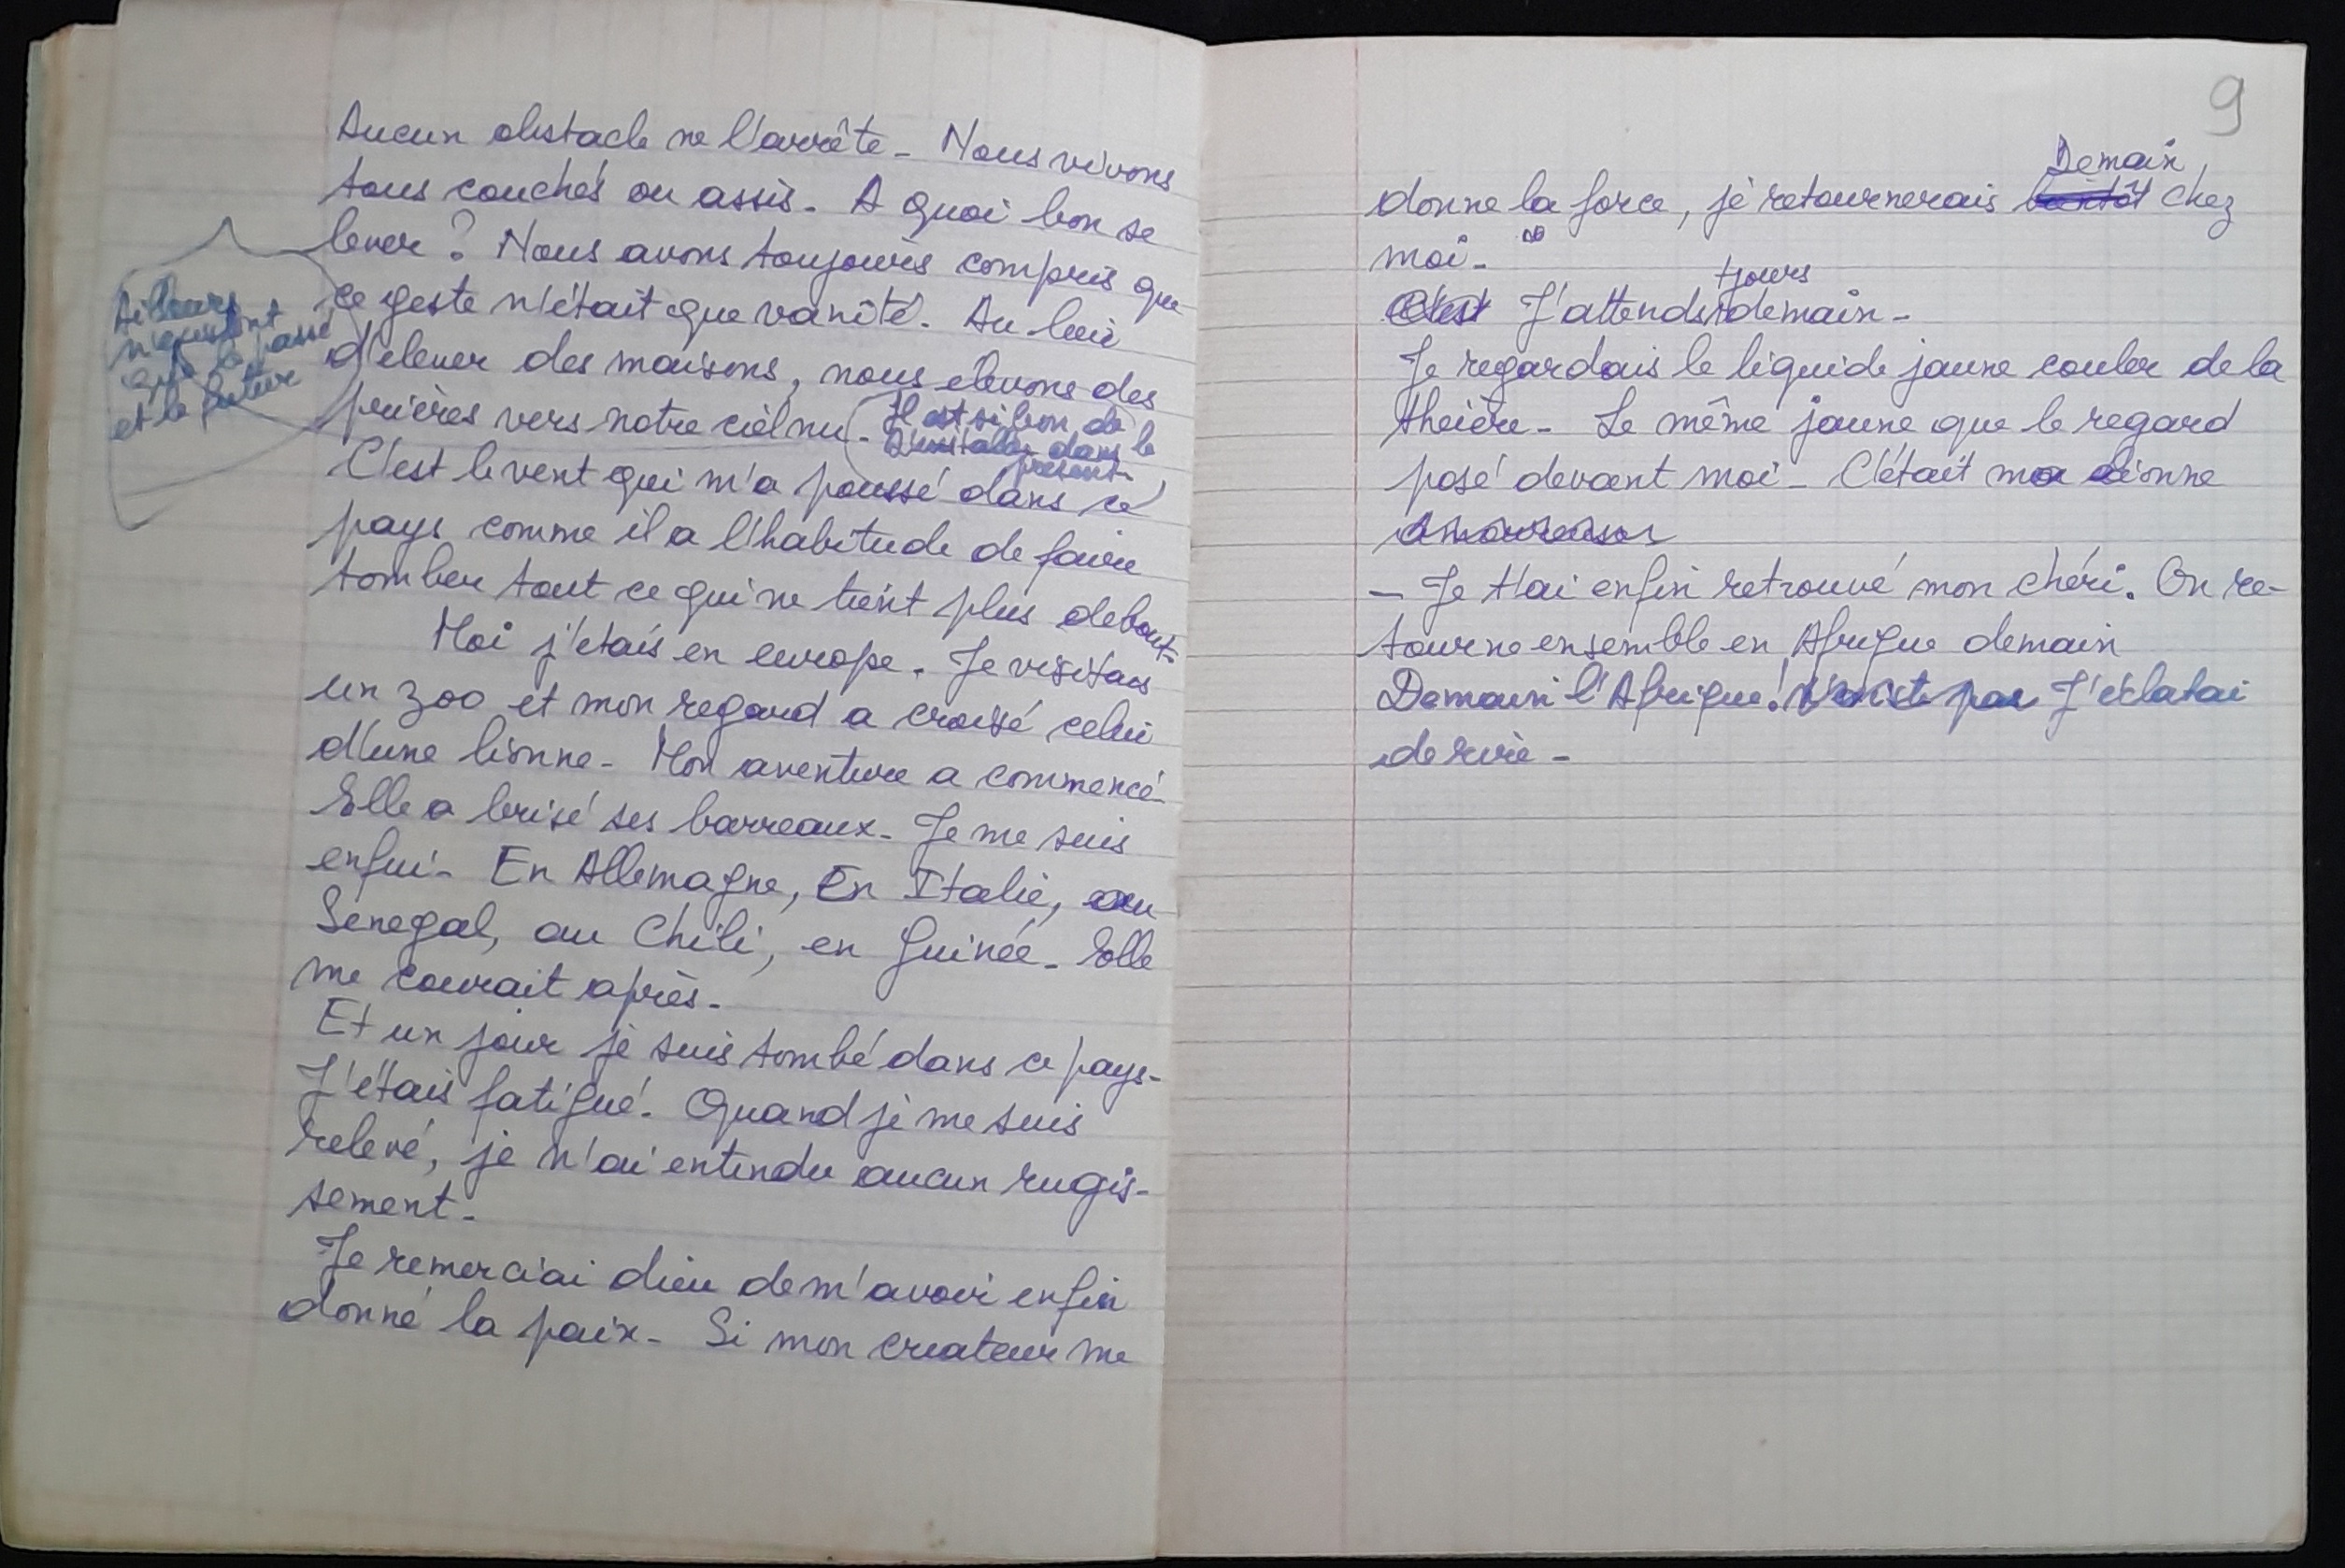 Aucun obstacle ne l'arrête - Nous vivons
tous couchés ou assis - A quoi bon se
lever ? Nous avons toujours compris que
ce geste n'était que vanité. Au lieu
d'élever des maisons, nous elevons des
prières vers notre ciel nu -
Il est si bon de
s'installer dans le
présent -
Ailleurs
n'existent
que le passé
et le futur
C'est le vent qui m'a poussé dans ce
pays comme il a l'habitude de faire
tomber tout ce qui ne tient plus debout -
Moi j'étais en europe. Je visitais
un zoo et mon regard a croisé celui
d'une lionne - Mon aventure a commencé -
Elle a brisé ses barreaux - Je me suis
enfui - En Allemagne, En Italie, au
Sénégal, au Chili, en Guinée - Elle
me courait après -
Et un jour je suis tombé dans ce pays -
J'étais fatigué. Quand je me suis
relevé, je n'ai entendu aucun rugis-
sement -
Je remerciai dieu de m'avoir enfin
donné la paix - Si mon créateur me
9
Demain
donne la force, je retournerais bientôt chez
moi -
tjours
C'est J'attends demain -
Je regardais le liquide jaune couler de la
theière - Le même jaune que le regard
posé devant moi - C'était ma lionne
amoureuse
- Je t'ai enfin retrouvé mon chéri. On re-
tourne ensemble en Afrique demain
Demain l'Afrique ! n'existe pas J'éclatai
de rire -